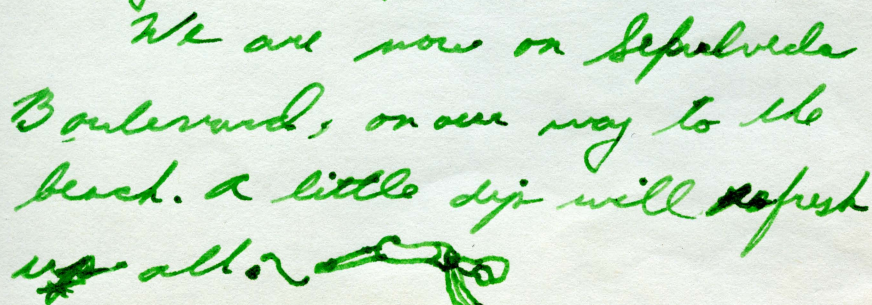 We are now on Sepulveda
Boulevard, on our way to the
beach. A little dip will refresh
us all.